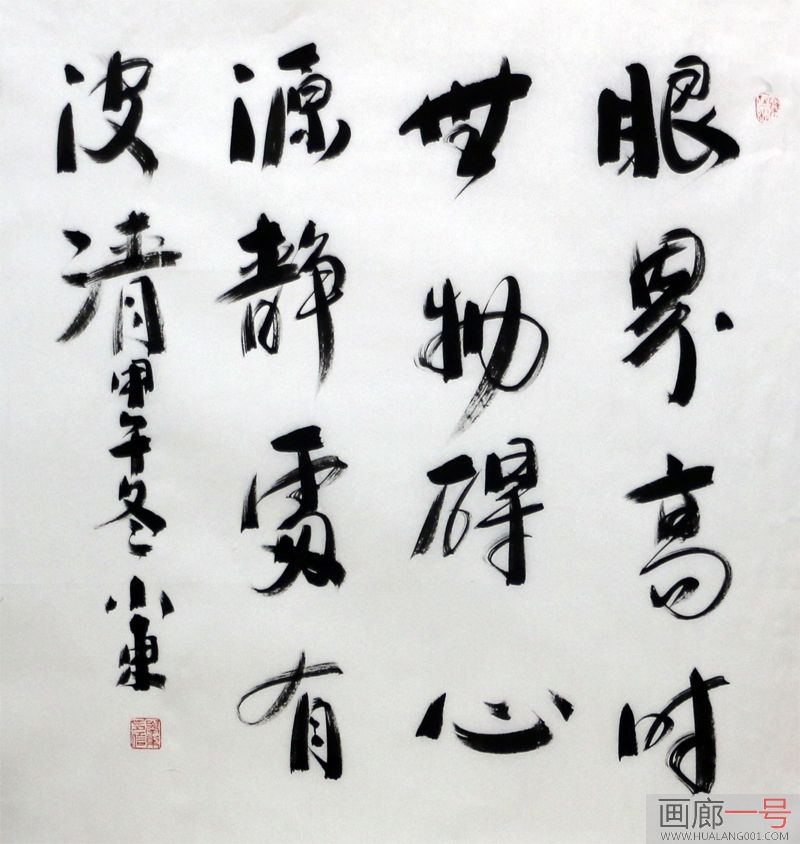 眼界高时
無物碍心
源静處有
波清甲午冬小東
画廊一号
WWW.HUALANG001.COM